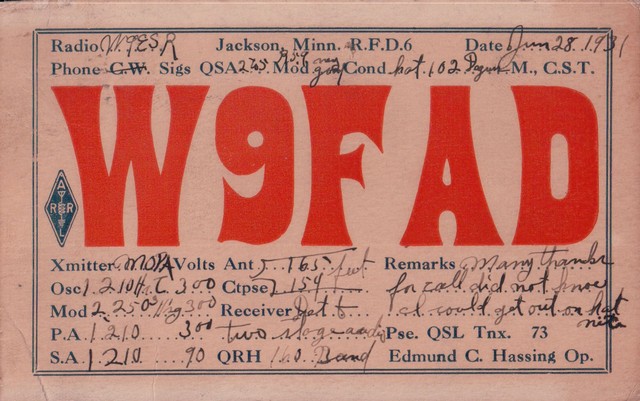 Radio W9ESR Jackson, Minn. R.F.D.6 Date Jun 28. 1931
Phone C.W. Sigs QSA Mod Cond hot. 102 M., C.S.T.
W9FAD
ARRL
Xmitter MOPA Volts Ant 165 feet Remarks Many thanks
Osc 1.210 300 Ctpse 154 for call did not know
Mod 2.250 300 Receiver Det & I could get out on hot
nite
P.A. 1.210. 300 two stage audio Pse. QSL Tnx. 73
S.A. 1.210. 90 QRH 160 Band Edmund C. Hassing Op.